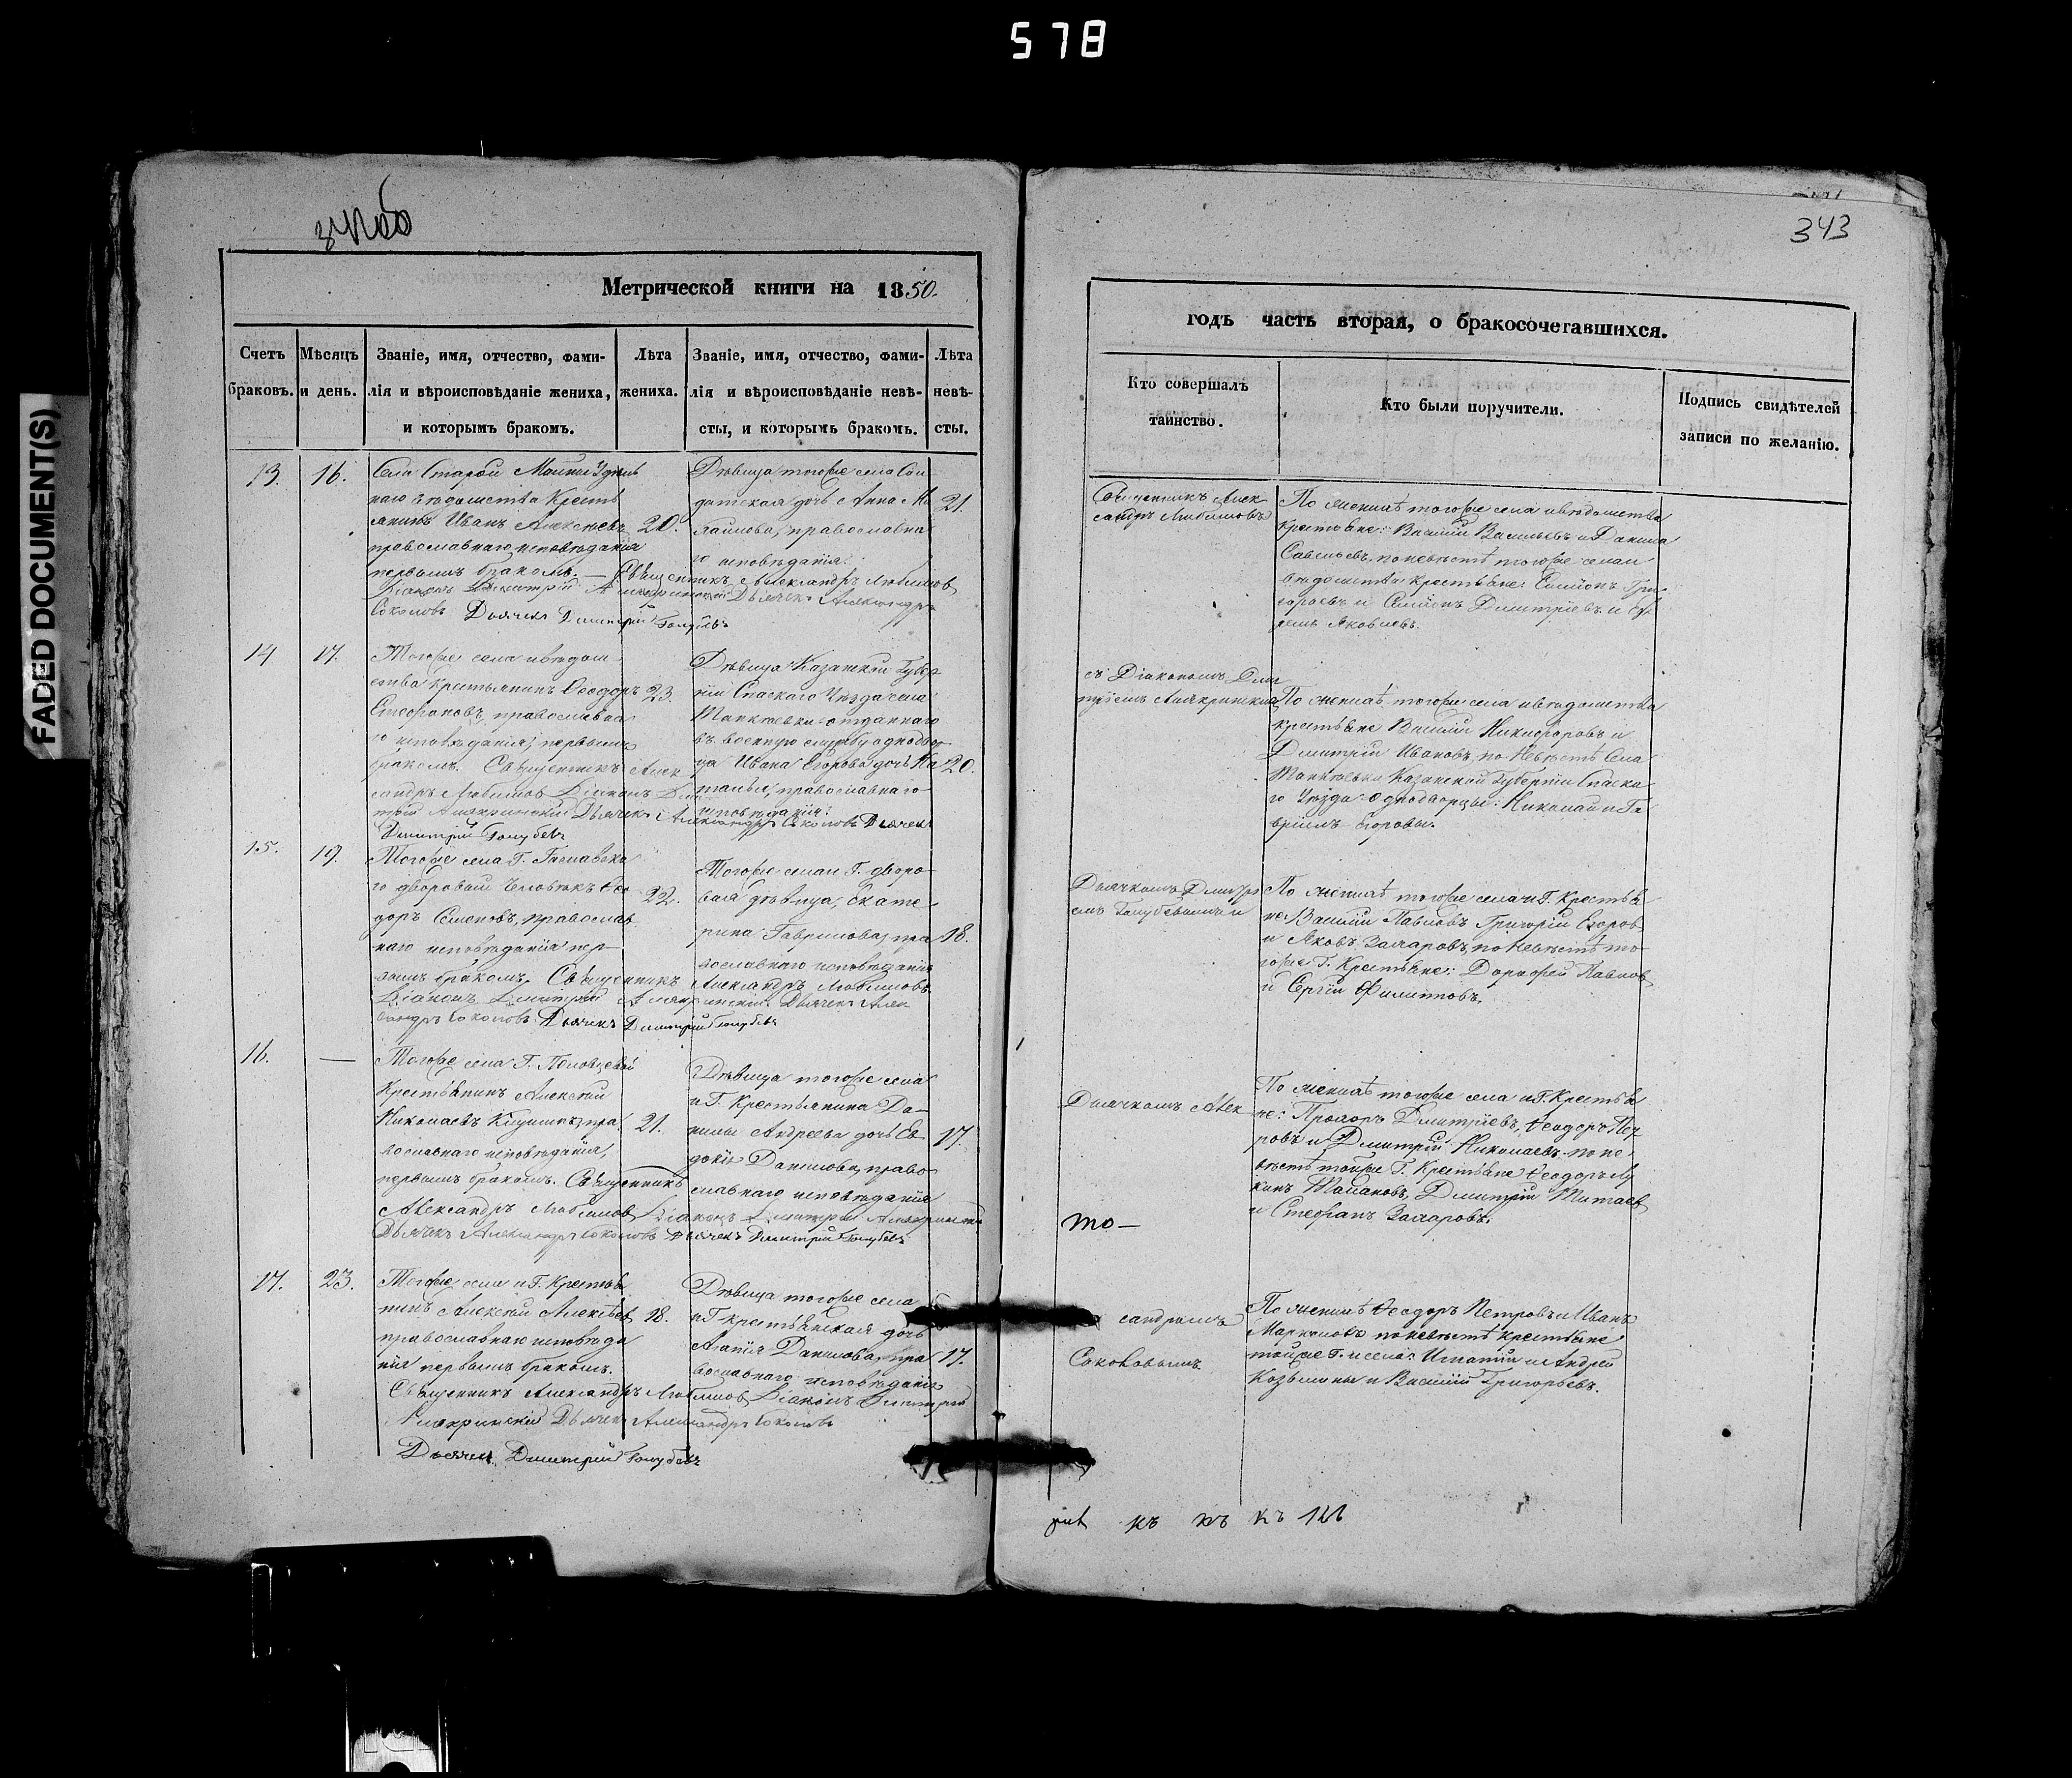 578
343
FADED DOCUMENT(S)
Метрической книги на 1850.
годъ часть вторая, о бракосочетавшихся.
Счетъ браковъ.
Мѣсяцъ и день.
Званіе, имя, отчество, фами-
лія и вѣроисповѣданіе жениха,
и которымъ бракомъ.
Лѣта жениха.
Званіе, имя, отчество, фами-
лія и вѣроисповѣданіе невѣ-
сты, и которымъ бракомъ.
Лѣта невѣ-
сты.
Кто совершалъ
таинство.
Кто были поручители.
Подпись свидѣтелей
записи по желанію.
13. 16.
Села Старой Майны Удѣль
наго вѣдомства Кресть
янинъ Иванъ Алексѣевъ 20.
православнаго исповѣданія
первымъ бракомъ. — Священникъ Александръ Любимов
Діаконъ Димитрій Дьячекъ Александръ
Соколовъ Дьячекъ Дмитрій Голубевъ
Дѣвица тогоже села Сол
датская дочь Анна Ми 21.
хайлова, православна
го исповѣданія.
Священникъ Алек
сандръ Любимовъ
По женихѣ тогоже села и вѣдомства
крестьяне: Василій Васильевъ и Данила
Савельевъ, по невѣстѣ тогоже села и
вѣдомства крестьяне: Симіонъ Гри-
горьевъ и Симіонъ Димитріевъ и Еф
ремъ Яковлевъ.
14 17.
Тогоже села и вѣдом
ства крестьянинъ Ѳеодоръ 23.
Стефановъ, православна
го исповѣданія, первымъ
бракомъ. Священникъ Алек
сандръ Любимов Діаконъ Дим
трій Дьячекъ Александръ Соколовъ Дьячекъ
Дмитрій Голубевъ
Дѣвица Казанской Губер
ніи Спаскаго Уѣзда села
отданнаго
въ военную службу однодвор
ца Ивана Егорова дочь На 20.
талья, православнаго
исповѣданія.
съ Діакономъ Дими
тріемъ
По женихѣ тогоже села и вѣдомства
крестьяне Василій Никифоровъ и
Дмитрій Ивановъ, по невѣстѣ Села
Казанской Губерніи Спаска
го Уѣзда однодворцы: Николай и Га
вріилъ Егоровы.
15. 19.
Тогоже села Г.
го дворовый человѣкъ Ѳео 22.
доръ Семеновъ, православ
наго исповѣданія пер-
вымъ бракомъ. Священникъ Александръ Любимовъ
Діаконъ Димитрій Дьячекъ Алек
сандръ Соколовъ Дьячекъ Дмитрій Голубевъ
Тогоже села и Г. дворо
вая дѣвица, Екате
рина Гаврилова, пра 18.
вославнаго исповѣданія
Дьячкомъ Дмитрі
емъ Голубевымъ и
По женихѣ тогоже села и Г. Крестья
не: Василій Павловъ Григорій Егоров
и Яковъ Захаровъ, по невѣстѣ то
гоже Г. Крестьяне: Дорофей Павлов
и Сергій Филиповъ.
16. —
Тогоже села Г.
Крестьянинъ Алексѣй
Николаевъ пра 21.
вославнаго исповѣданія,
первымъ бракомъ. Священникъ
Александръ Любимов Діаконъ Димитрій
Дьячекъ Александръ Соколовъ Дьячекъ Дмитрій Голубевъ
Дѣвица тогоже села
и Г. Крестьянина Да-
нилы Андреева дочь Ев 17.
докія Данилова, право
славнаго исповѣданія
Дьячкомъ Алек
то —
По женихѣ тогоже села и Г. Крестья
не: Прохоръ Димитріевъ, Ѳеодоръ Пет
ровъ и Дмитрій Николаевъ по не
вѣстѣ тойже Г. Крестьяне Ѳеодоръ
Дмитрій
и Стефанъ Захаровъ.
17. 23.
Тогоже села и Г. Крестья
нинъ Алексѣй Алексѣев 18.
православнаго исповѣда
нія первымъ бракомъ.
Священникъ Александръ Любимов Діаконъ Димитрій
Дьячекъ Александръ Соколовъ
Дьячекъ Дмитрій Голубевъ
Дѣвица тогоже села
и Г. крестьянская дочь
Агапія Данилова, пра 17.
вославнаго исповѣданія
сандромъ
Соколовымъ.
По женихѣ Ѳеодоръ Петровъ и Иванъ
по невѣстѣ крестьяне
тойже Г. и села: Игнатій и Андрей
Козьмины и Василій Григорьевъ.